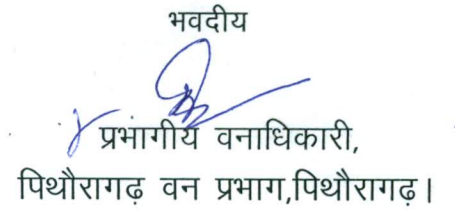 भवदीय
प्रभागीय वनाधिकारी,
पिथौरागढ़ वन प्रभाग,पिथौरागढ़।